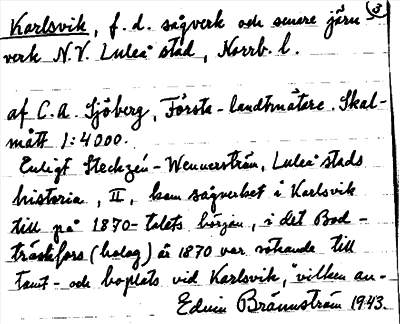 Karlsvik, f. d. sågverk och senare järn 3
verk N.V. Luleå stad, Norrb. l.
af C. A. Sjöberg, Första-landtmätare. Skal-
mått 1:4000.
Enligt Steckzén-Wennerström, Luleå stads
historia, II, kom sågverket i Karlsvik
till på 1870-talets början, i det Bod-
träskfors (bolag) år 1870 var sökande till
tomt- och boplats vid Karlsvik, "vilken an-
Edvin Brännström 1943.